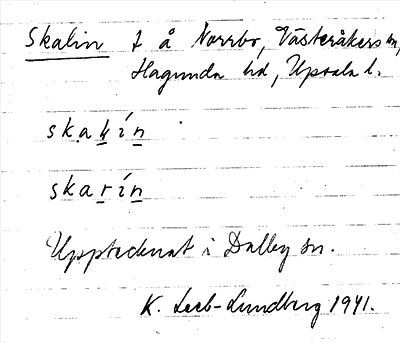 Skalin f å Norrbo, Västeråkers sn,
Hagunda hd, Upsala l.
skaḷín
skarín
Upptecknat i Dalby sn.
K. Leeb-Lundberg 1941.